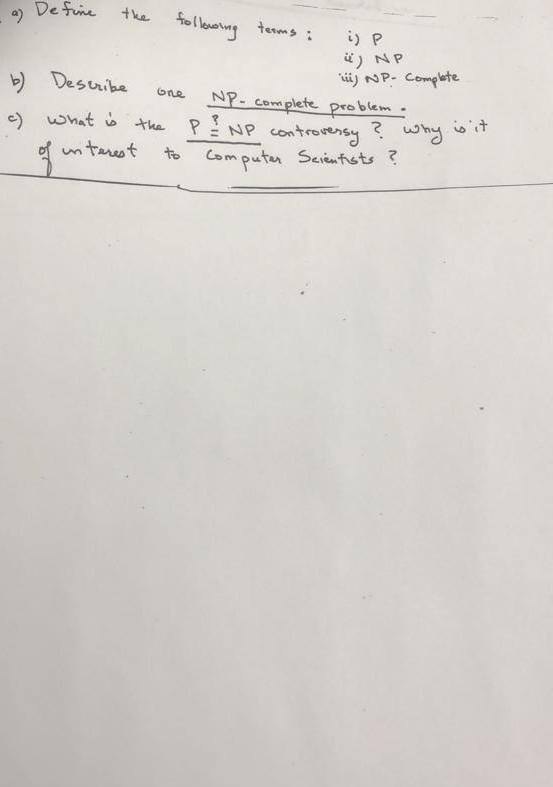 a) Define the following terms : i) P
ii) NP
iii) NP- Complete
b) Describe one NP-complete problem.
c) What is the P ≟ NP controversy ? Why is it
of interest to Computer Scientists ?